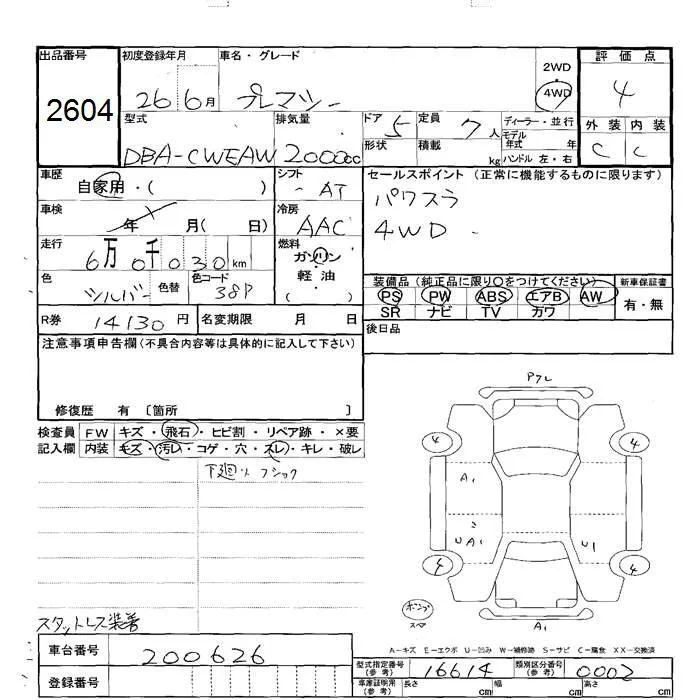 出品番号 初度登録年月 車名・グレード 2WD 評価点
2604 26 6月 プレマシー 4WD 4
型式 排気量 ドア 5 定員 7人 ディーラー・並行
モデル年式 年
外装 内装
DBA-CWEAW 2000cc 形状 積載 kg ハンドル 左・右 C C
車歴 自家用・( ) シフト AT セールスポイント (正常に機能するものに限ります)
パワスラ
車検 年 月( 日) 冷房 AAC 4WD
走行 6万0千030km 燃料 ガソリン
軽・油
( )
色 シルバー 色替 色コード 38P
装備品 (純正品に限り○をつけてください) 新車保証書
PS PW ABS エアB AW 有・無
SR ナビ TV カワ
R券 14130円 名変期限 月 日 後日品
注意事項申告欄(不具合内容等は具体的に記入して下さい)
修復歴 有 〔箇所 〕
検査員 FW キズ・飛石・ヒビ割・リペア跡・×要
記入欄 内装 キズ・汚レ・コゲ・穴・スレ・キレ・破レ
下廻り フショク
4 4
A1
UA1 U1
4 4
A1
スペア
スタットレス装着
A-キズ E-エクボ U-凹み W-補修跡 S-サビ C-腐食 XX-交換済
車台番号 200626
登録番号
型式指定番号(参考) 16614 類別区分番号(参考) 0002
車庫証明用(参考) 長さ cm 幅 cm 高さ cm